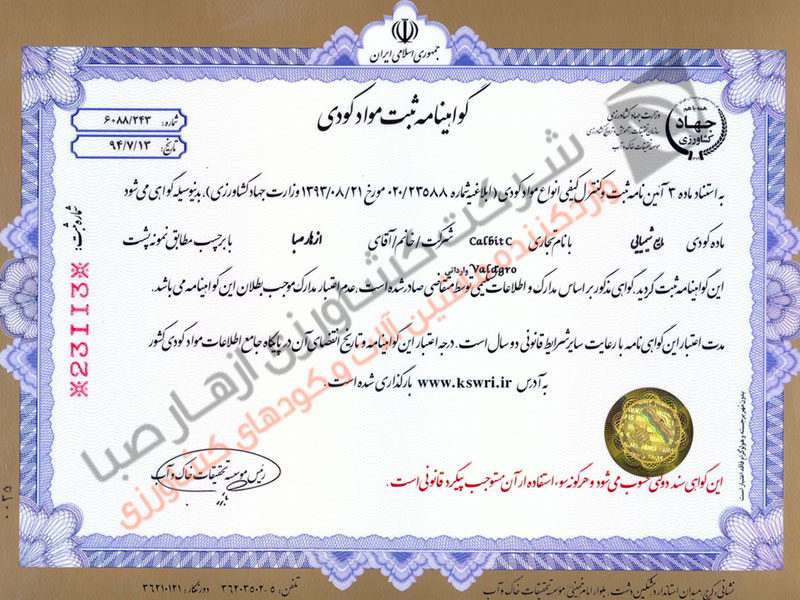 جمهوری اسلامی ایران
گواهینامه ثبت مواد کودی
شماره: ۶۰۸۸/۲۴۳
تاریخ: ۹۴/۷/۱۳
همه با هم
جهاد
کشاورزی
وزارت جهاد کشاورزی
سازمان تحقیقات، آموزش و ترویج کشاورزی
موسسه تحقیقات خاک و آب
به استناد ماده ۳ آئین نامه ثبت و کنترل کیفی انواع مواد کودی (ابلاغیه شماره ۰۲۰/۲۳۵۸۸ مورخ ۱۳۹۳/۰۸/۲۱ وزارت جهاد کشاورزی)، بدینوسیله گواهی می شود
ماده کودی مایع شیمیایی با نام تجاری Calbit C شرکت / خانم / آقای ازهار صبا با برچسب مطابق نمونه پشت
وارداتی Valagro
این گواهینامه ثبت گردید. گواهی مذکور بر اساس مدارک و اطلاعات علمی توسط متقاضی صادر شده است، عدم اعتبار مدارک موجب بطلان این گواهینامه می باشد.
مدت اعتبار این گواهی نامه با رعایت سایر شرایط قانونی دو سال است. درجه اعتبار این گواهینامه و تاریخ انقضای آن در پایگاه جامع اطلاعات مواد کودی کشور
به آدرس www.kswri.ir بارگذاری شده است.
شماره ثبت:
*23113*
بدون مهر برجسته و هولوگرام فاقد اعتبار است
رئیس موسسه تحقیقات خاک و آب
این گواهی سند دولتی محسوب می شود و هرگونه سوء استفاده از آن مستوجب پیگرد قانونی است.
۰۰۳۵
نشانی: کرج، میدان استاندارد، مشکین دشت، بلوار امام خمینی، موسسه تحقیقات خاک و آب
تلفن: ۵-۳۶۲۰۳۵۰۲ دورنگار: ۳۶۲۱۰۱۲۱
شرکت کشاورزی ازهار صبا
وارد کننده ماشین آلات و کودهای کشاورزی